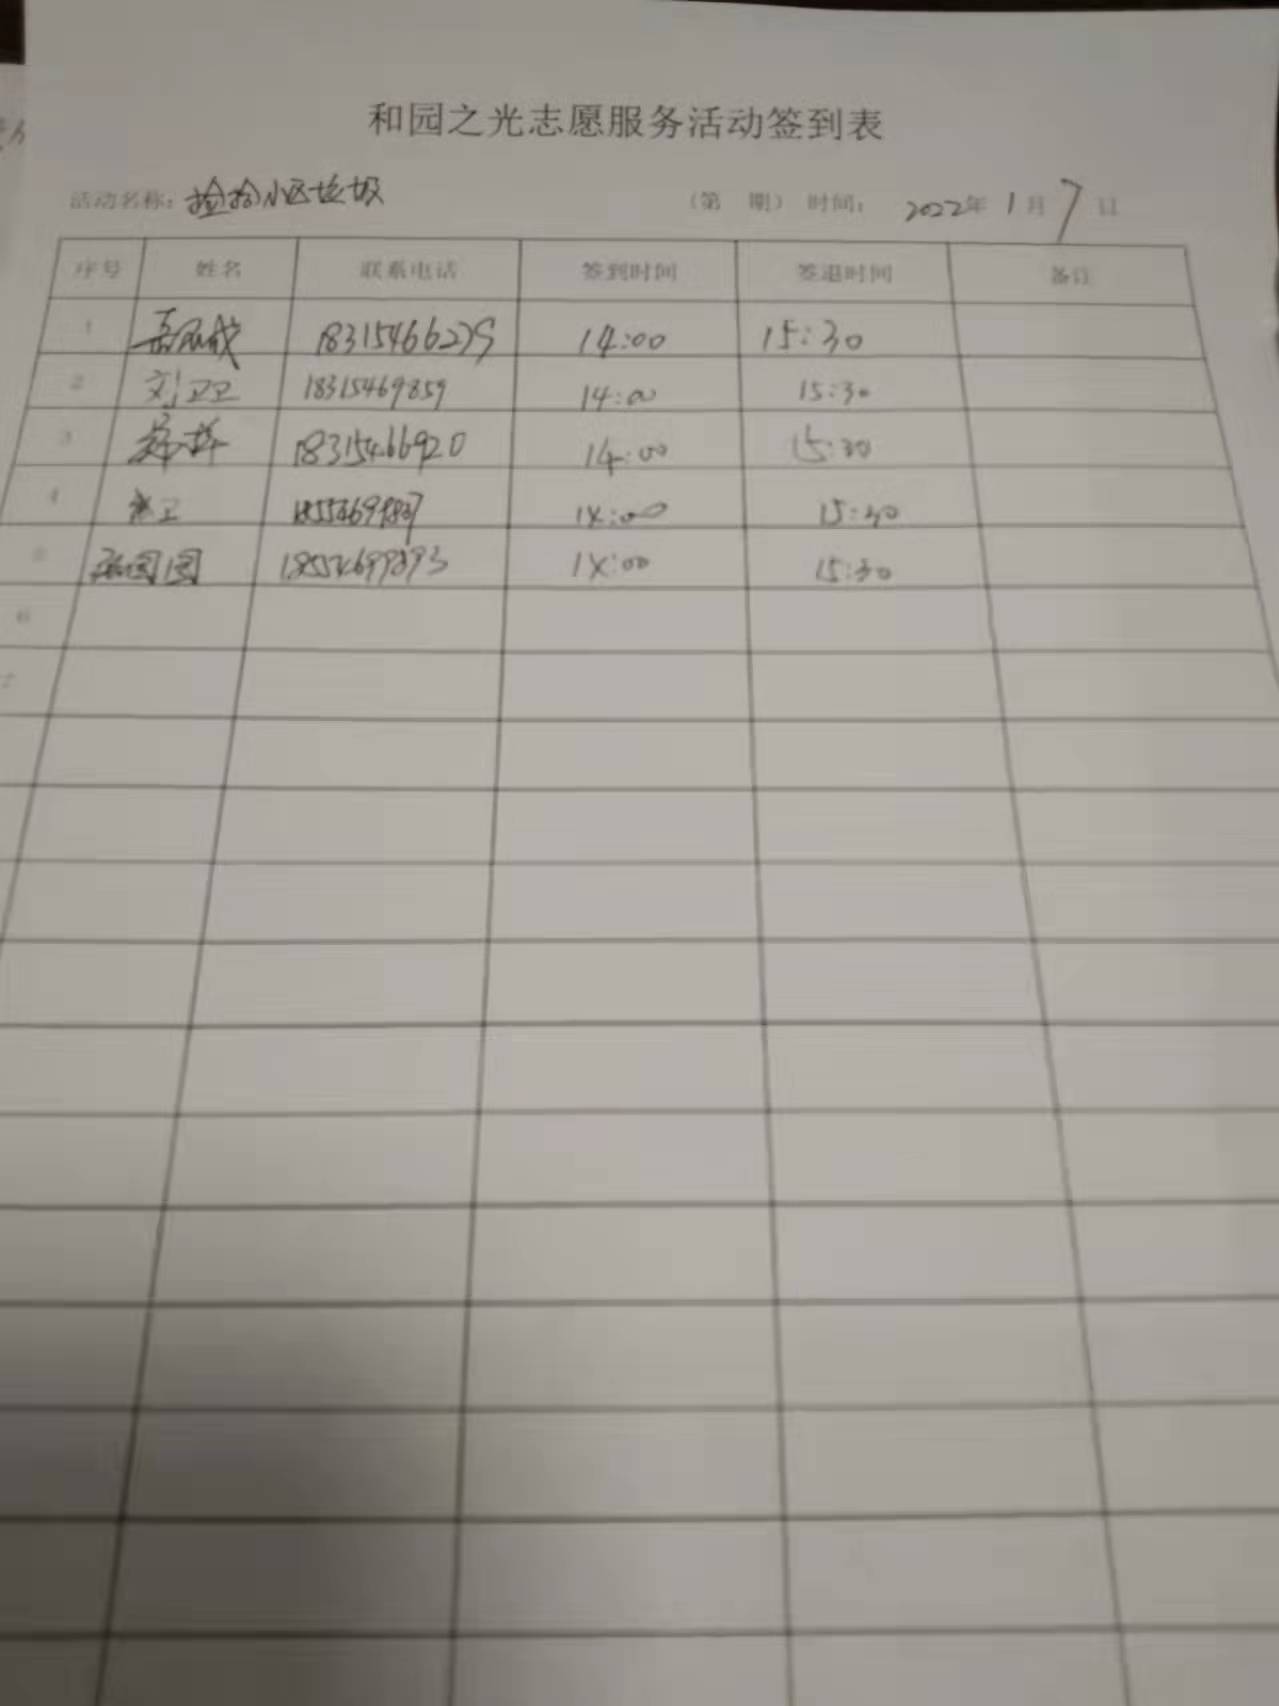 和园之光志愿服务活动签到表
活动名称：捡拾小区垃圾 （第 期） 时间： 2022年 1月 7日
序号 姓名 联系电话 签到时间 签退时间 备注
1 14:00 15:30
2 刘卫卫 18315469859 14:00 15:30
3 18315466920 14:00 15:30
4 14:00 15:30
5 14:00 15:30
6
7